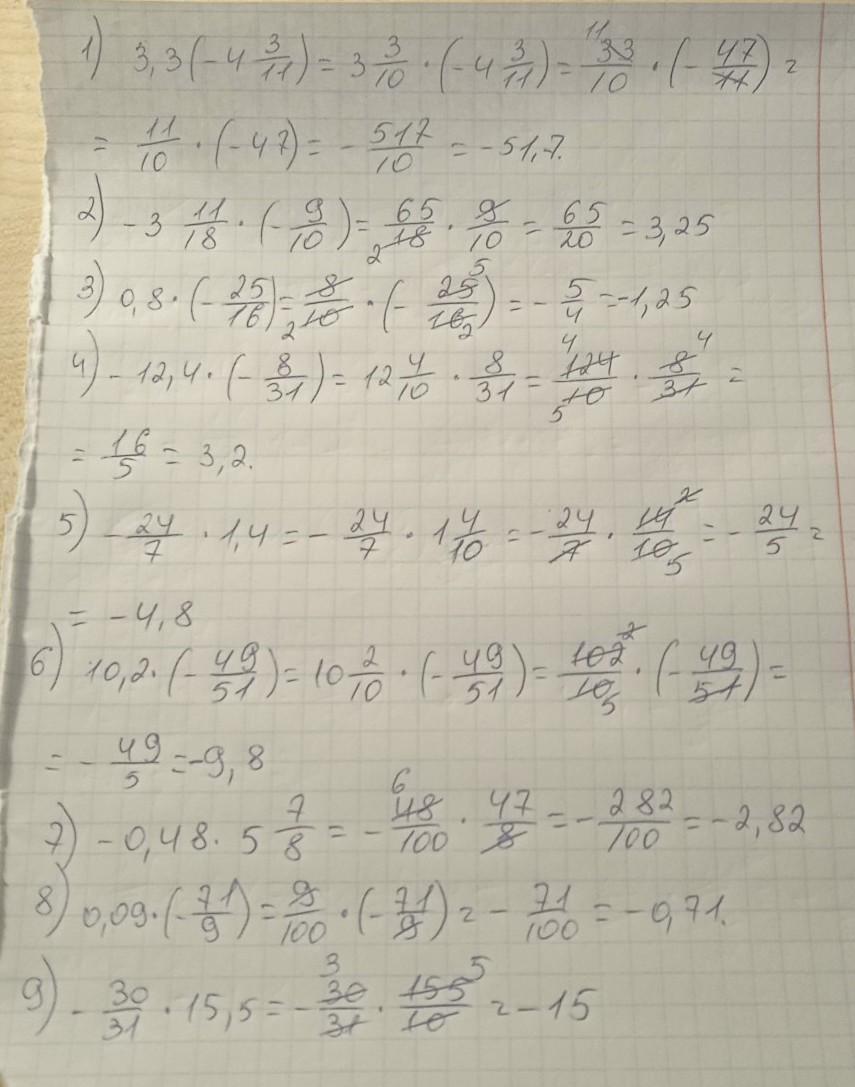 1) 3,3(-4 3/11) = 3 3/10 · (-4 3/11) = 11 33/10 · (- 47/11) =
= 11/10 · (-47) = - 517/10 = -51,7.
2) -3 11/18 · (- 9/10) = 65/18 2 · 9/10 = 65/20 = 3,25
3) 0,8 · (- 25/16) = 8/10 2 · (- 25 5/16 2) = - 5/4 = -1,25
4) -12,4 · (- 8/31) = 12 4/10 · 8/31 = 4 124/10 5 · 8 4/31 =
= 16/5 = 3,2.
5) - 24/7 · 1,4 = - 24/7 · 1 4/10 = - 24/7 · 14 2/10 5 = - 24/5 =
= -4,8
6) 10,2 · (- 49/51) = 10 2/10 · (- 49/51) = 102 2/10 5 · (- 49/51) =
= - 49/5 = -9,8
7) -0,48 · 5 7/8 = - 6 48/100 · 47/8 = - 282/100 = -2,82
8) 0,09 · (- 71/9) = 9/100 · (- 71/9) = - 71/100 = -0,71.
9) - 30/31 · 15,5 = - 3 30/31 · 155 5/10 = -15